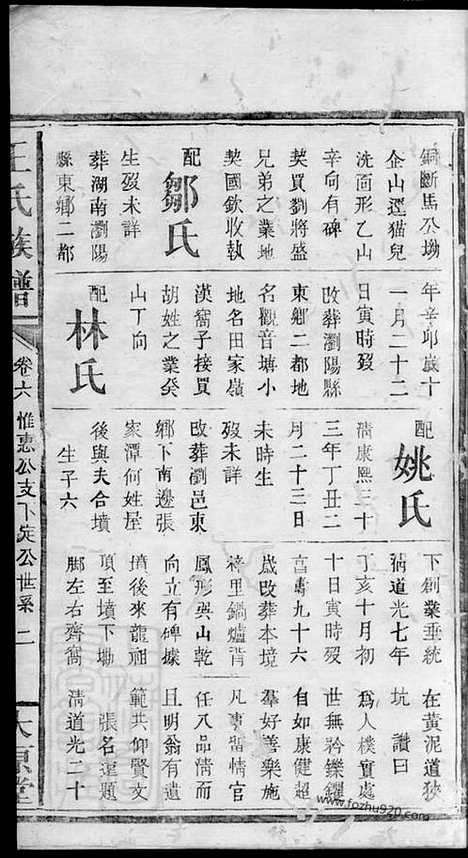 銅斷馬公坳
金山逕猫兒
洗面形乙山
辛向有碑
契買劉將盛
兄弟之業地
契國欽收執
配鄒氏
生歿未詳
葬湖南瀏陽
縣東鄉二都
年辛卯歲十
一月二十二
日寅時歿
改葬瀏陽縣
東鄉二都地
名觀音塘小
地名田家嶺
漢窩子接買
胡姓之業癸
山丁向
配林氏
配姚氏
清康熙三十
三年丁丑二
月二十三日
未時生
歿未詳
改葬瀏邑東
鄉下南邊張
家潭何姓屋
後與夫合墳
生子六
下創業垂統
清道光七年
丁亥十月初
十日寅時歿
享壽九十六
歲改葬本境
祿里鍋爐背
鳳形巽山乾
向立有碑據
墳後來龍祖
頂至墳下坳
脚左右齊窩
在黃泥道狹
坑 讚曰
爲人樸實處
世無矜鑠耀
自如康健超
羣好善樂施
凡事畱情官
任八品淸而
且明翁有遺
範共仰賢文
張名運題
淸道光二十
王氏族譜
卷六 惟惠公支下定公世系 二
太原堂
www.fozhu920.com